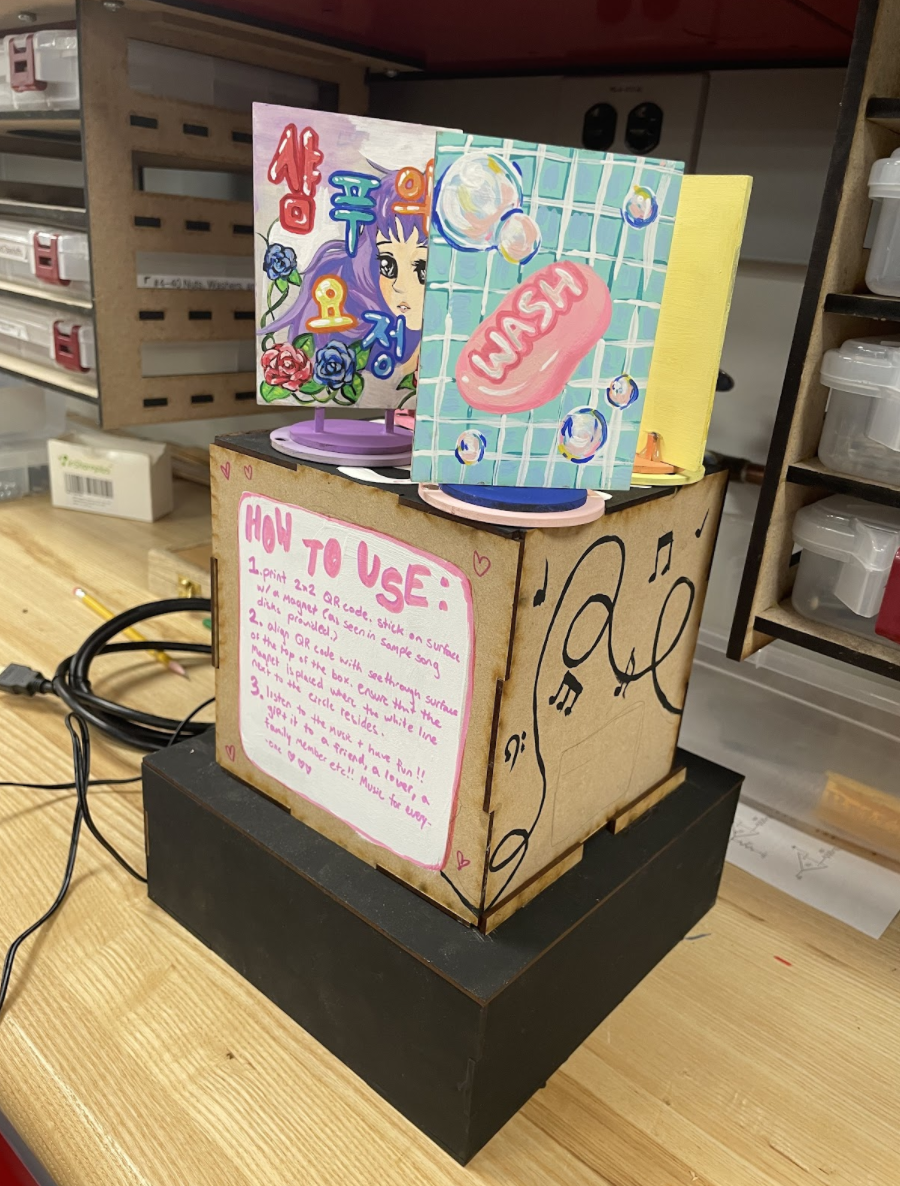 샴
푸의
요
정
WASH
#4-40 Nuts, Washers,
HOW TO USE:
1. print 2x2 QR code. stick on surface
w/ a magnet (as seen in sample song
disks provided.)
2. align QR code with seethrough surface
of the top of the box. ensure that the
magnet is placed where the white line
next to the circle resides.
3. listen to the music + have fun!!
gift it to a friend, a lover, a
family member etc!! Music for every-
-one